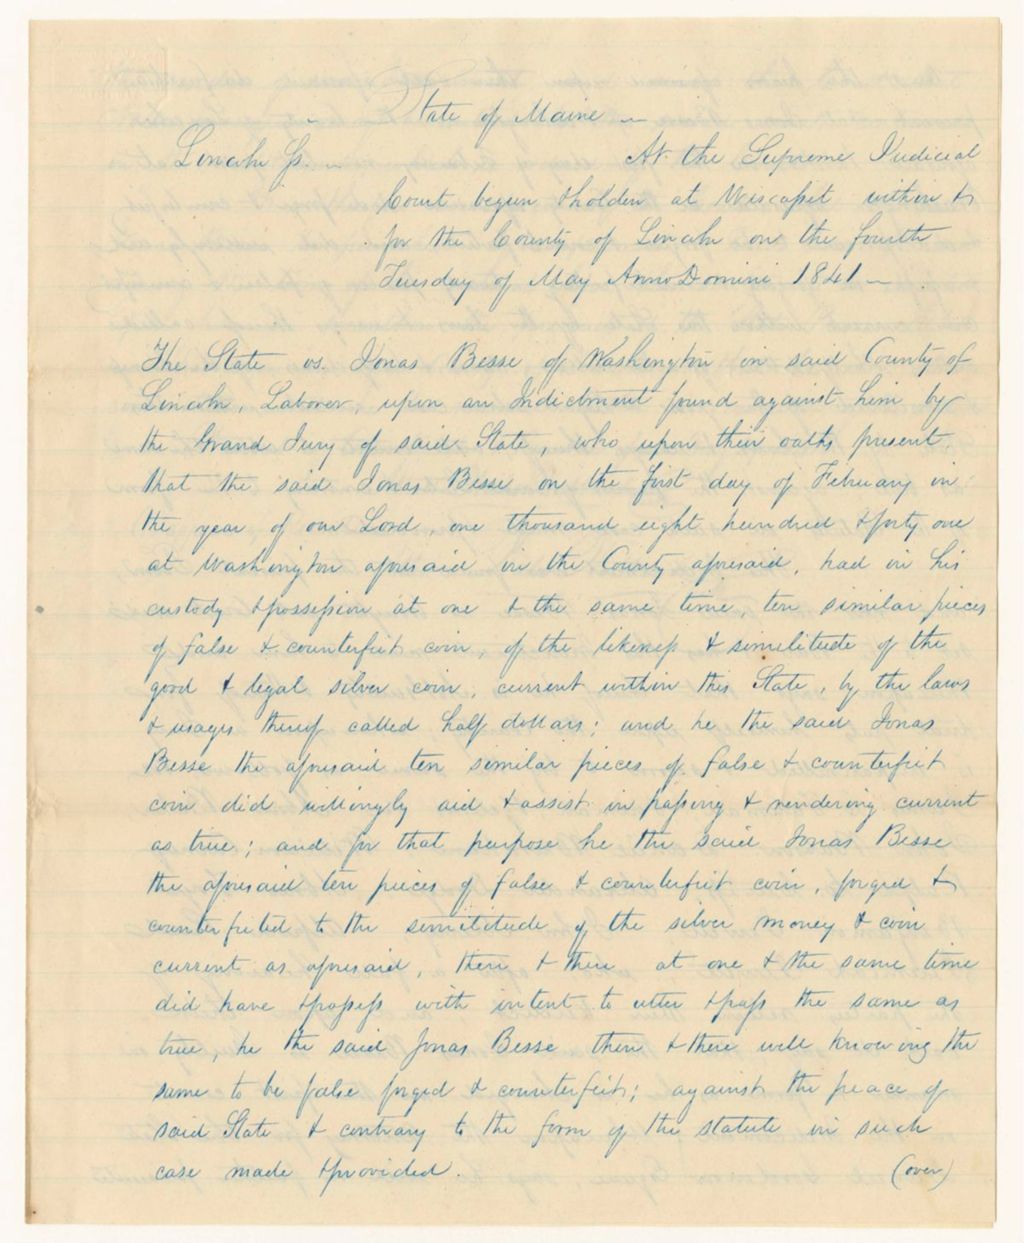 State of Maine
Lincoln Ss. At the Supreme Judicial
Court begun & holden at Wiscasset within &
for the County of Lincoln on the fourth
Tuesday of May Anno Domini 1841
The State vs. Jonas Besse of Washington in said County of
Lincoln, Laborer, upon an Indictment found against him by
the Grand Jury of said State, who upon their oaths present
that the said Jonas Besse on the first day of February in
the year of our Lord one thousand eight hundred & forty one
at Washington aforesaid in the County aforesaid, had in his
custody & possession at one & the same time, ten similar pieces
of false & counterfeit coin, of the likeness & similitude of the
good & legal silver coin, current within this State, by the laws
& usages thereof called half dollars; and he the said Jonas
Besse the aforesaid ten similar pieces of false & counterfeit
coin did willingly aid & assist in passing & rendering current
as true; and for that purpose he the said Jonas Besse
the aforesaid ten pieces of false & counterfeit coin, forged &
counterfeited to the similitude of the silver money & coin
current as aforesaid, then & there at one & the same time
did have & possess with intent to utter & pass the same as
true, he the said Jonas Besse then & there well knowing the
same to be false forged & counterfeit; against the peace of
said State & contrary to the form of the statute in such
case made & provided. (over)